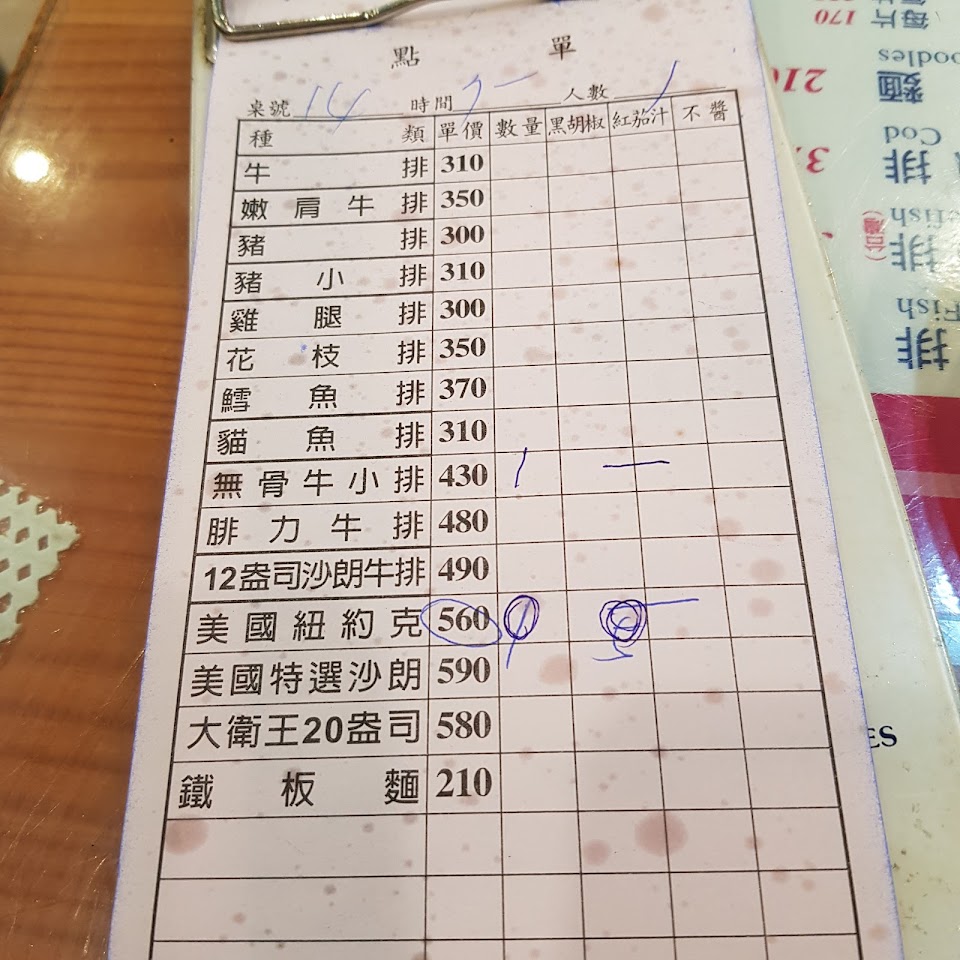 點 單
桌號 14 時間 人數 1
種 類 單價 數量 黑胡椒 紅茄汁 不醬
牛 排 310
嫩肩牛排 350
豬 排 300
豬小排 310
雞腿排 300
花枝排 350
鱈魚排 370
貓魚排 310
無骨牛小排 430 1 一
腓力牛排 480
12盎司沙朗牛排 490
美國紐約克 560
美國特選沙朗 590
大衛王20盎司 580
鐵板麵 210
每片
170 每片
oodles
麵
Cod
排
排
(台灣)
Fish
排
ES